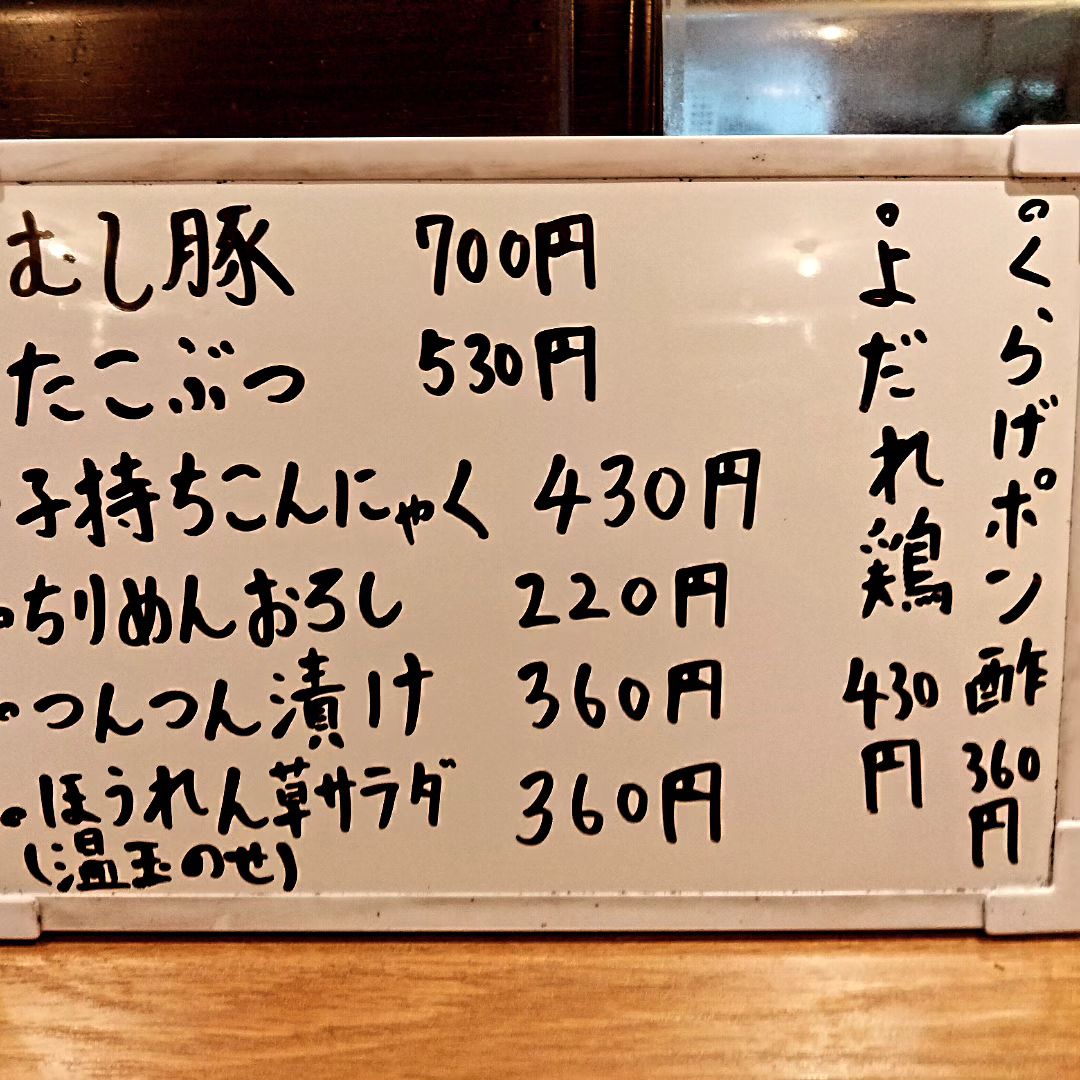 むし豚 700円
たこぶつ 530円
子持ちこんにゃく 430円
ちりめんおろし 220円
つんつん漬け 360円
ほうれん草サラダ 360円
(温玉のせ)
くらげポン酢 360円
よだれ鶏 430円